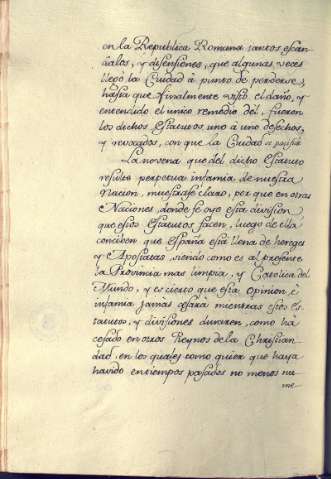 en la Republica Romana tantos escan
dalos, y disensiones, que algunas veces
llegó la Ciudad á punto de perderse,
hasta que finalmente visto el daño, y
entendido el unico remedio dél, fueron
los dichos Estatutos uno á uno deshechos,
y revocados, con que la Ciudad se pacificó
La novena que del dicho Estatuto
resulta perpetua infamia de nuestra
Nacion, muestrase claro, por que en otras
Naciones, donde se oye esta division
que estos Estatutos hacen, luego de ella
conciben que España está llena de hereges
y Apostatas, siendo como es al presente
la Provincia mas limpia, y Catolica del
Mundo, y es cierto que esta opinion, é
infamia jamás cesará mientras estos Es
tatutos, y divisiones duraren, como há
cesado en otros Reynos de la Christian
dad, en los quales como quier que haya
havido en tiempos pasados no menos nu
me